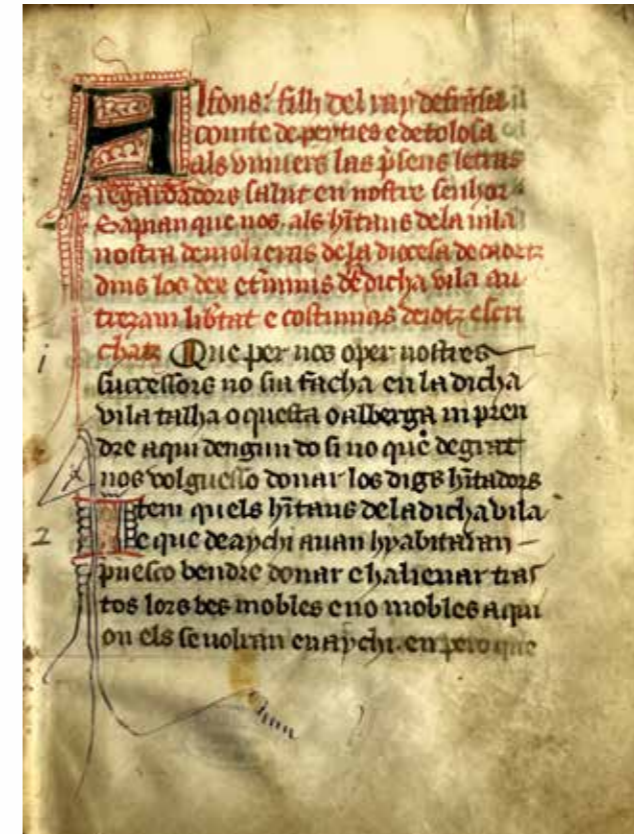 Alfons. filh del ray de fransa
comte de peyties e de tolosa
als univers las p̃sens letras
regardadors salut en nostre senhor
Sapian que nos. als hĩtans dela vila
nostra de molieras de la diocesa de caortz
dins los dex et̃minis de dicha vila au
treȝam lib̃tat e costumas deiotz escri
chas Que per nos o per nostres
successors no sia facha en la dicha
vila talha o questa o alberga ni pren
dre aqui dengun do si no que de grat
nos volguesso donar los digs hĩtadors
Item quels hĩtans dela dicha vila
e que de aychi auan hyabitaran
puesco vendre donar e halienar tras
tos lors bes mobles e no mobles a qui
on els se volran en aychi. en pero que
1
2